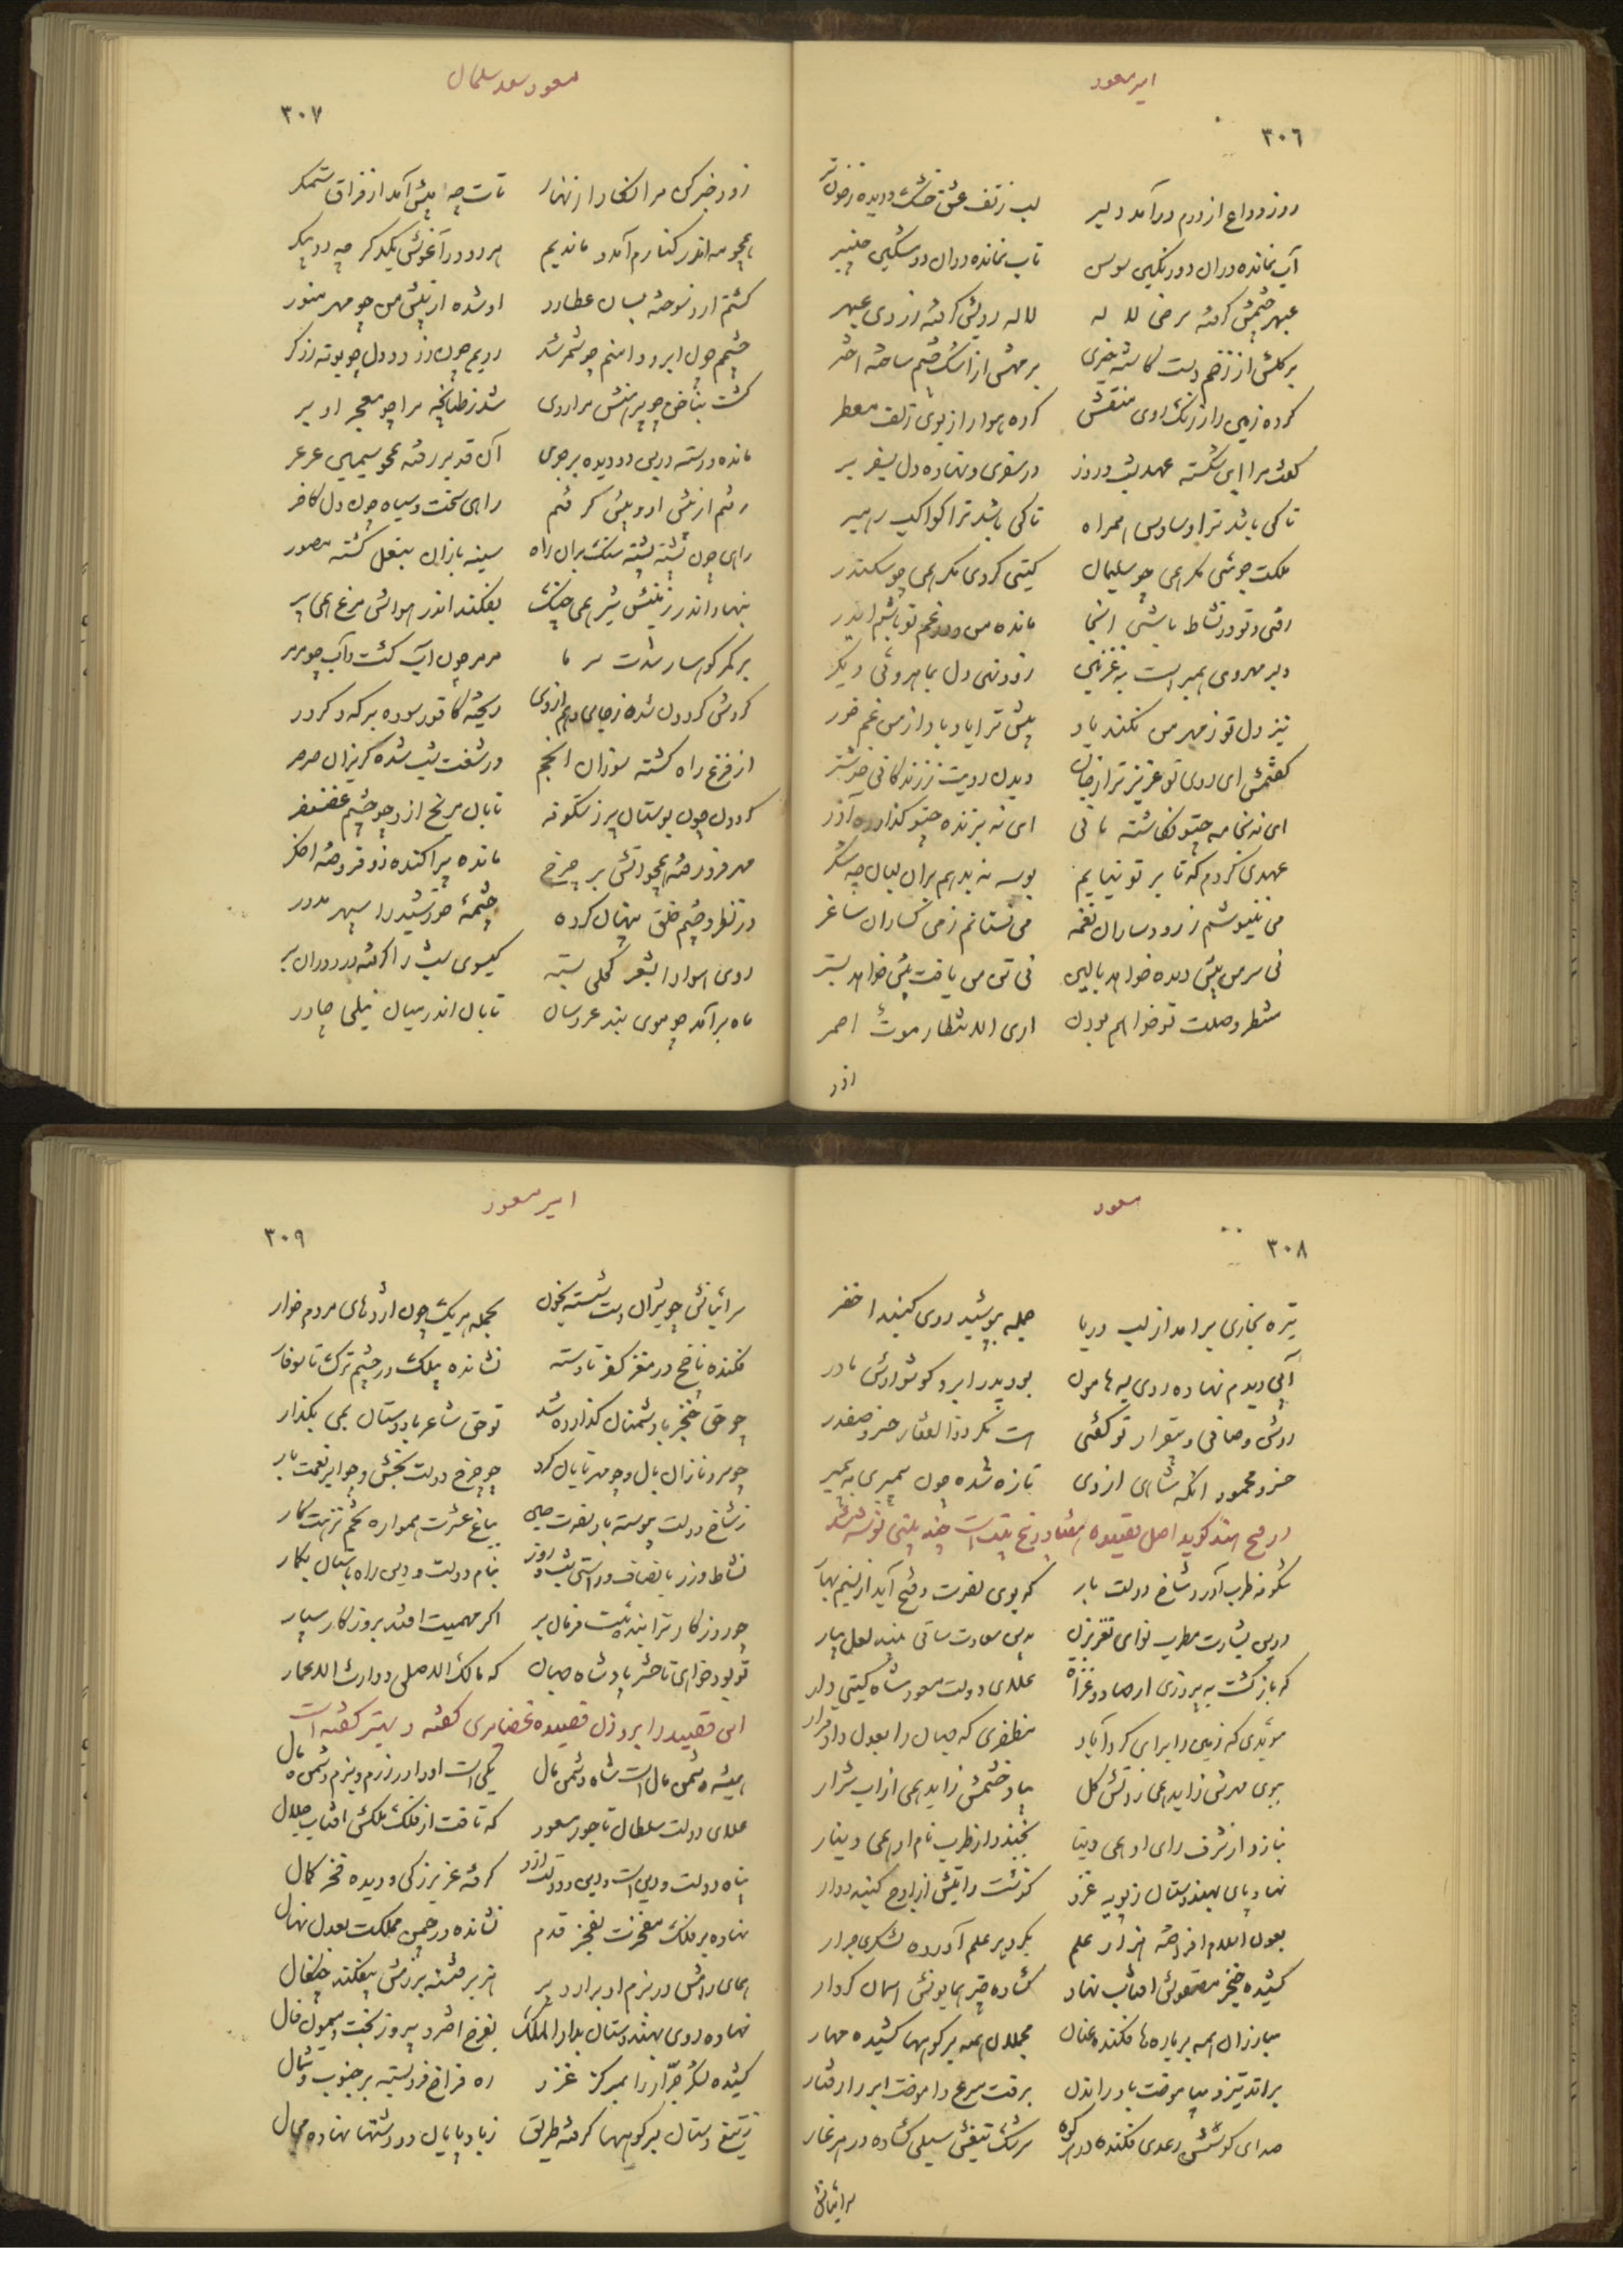 امیر مسعود
٣٠٦
روز وداع از درم درآمد دلبر لب ز تف عشق خشک و دیده ز خون تر
آب نمانده در ان دو رنگین سوسن تاب نمانده در ان دو مشکین چنبر
عبهر چشمش گرفته سرخی لاله لاله رویش گرفته زردی عبهر
بر گلش از زخم دست کاشته خیری بر مهش از اشک چشم ساخته اختر
کرده زمین را ز رنگ روی منقش کرده هوا را ز بوی زلف معطر
گفت مرا ای شکسته عهد شب و روز در سفری و نهاده دل بسفر بر
تا کی باشد ترا وساوس همراه تا کی باشد ترا کواکب رهبر
ملکت جوئی مگر همی چو سلیمان گیتی گردی مگر همی چو سکندر
رفتی و تو در نشاط باشی آنجا مانده من در غم تو باشم ایدر
دیر مهر وی همبر است به غزنین زود نهی دل بماهروئی دیگر
نیز دل تو ز مهر من نکند یاد پیش ترا یاد باد از من غم خور
گفتمش ای روی تو عزیزتر از جان دیدن رویت ز زندگانی خوشتر
ای نه بخامه چو تو نگاشته مانی ای نه برنده چو تو گذارده آزر
عهدی کردم که تا بر تو نیایم بوسه نه بدهم بران لبان چو شکر
می ننیوشم ز رود سازان نغمه می نستانم ز می گساران ساغر
نی سر من پیش دیده خواهد بالین نی تن من یافت پیش خواهد بستر
منتظر وصلت تو خواهم بودن اری الانتظار موت احمر
ازر
مسعود سعد سلمان
٣٠٧
زود خبر کن مرا نگارا زنهار تات چه پیش آمد از فراق ستمگر
همچو مه اندر کنارم آمد و ماندیم هر دو در آغوش یکدگر چو دو پیکر
گشتم از و سوخته بسان عطارد او شده از پیش من چو مهر منور
چشمم چون ابر و دامنم چو شمر شد رویم چون زر و دل چو بوته زرگر
گشت بناخن چو پرنیش مرا روی شد ز طپانچه مرا چو معجر او بر
مانده و رسته در بن دو دیده بر جوی آن قد بر رفته همچو سیمین عرعر
رفتم از پیش او و پیش گرفتم راهی سخت و سیاه چون دل کافر
راهی چون پشته پشته سنگ بران راه سینه بازان بنعل گشته مصور
بنهاد اندر زمینش شیر همی چنگ بفکند اندر هواش مرغ همی پر
بر کمر کوهسار شدت سرما مرمر چون آب گشت و آب چو مرمر
گردش گردون شده زجای و هم از وی ریخته کافور سوده بر که و کردر
از فزع راه گشته سوزان انجم در شغب شب شده گریزان صرصر
گردون چون بوستان پر ز شکوفه تابان مریخ ازو چو چشم غضنفر
مهر فروزنده همچو آتش بر چرخ مانده پراکنده زو فروخته اخگر
در تظر و چشم خلق پنهان کرده چشمه خورشید را سپهر مدور
روی هوا را بشعر کحلی بسته گیسوی شب را گرفته در دوران بر
ماه برآمد چو موی بند عروسان تابان اندر میان نیلی چادر
مسعود
٣٠٨
تیره بخاری برامد از لب دریا جمله بپوشید روی گنبد اخضر
آبی دیدم نهاده روی به هامون بود پدر ابر و کوش بودش مادر
روشن و صافی و بیقرار تو گفتی هست مگر ذو الفقار خسرو صفدر
خسرو محمود انکه شاهی از وی تازه شده چون پیمبری به پیمبر
در فتح هند گوید اصل قصیده هفتاد و پنج بیتست چند بیتی نوشته شد
شکوفه طرب آورد شاخ دولت بار که بوی نصرت و فتح آید از نسیم بهار
درین بشارت مطرب نوای نغز بزن بدین سعادت ساقی نبید لعل بیار
که بازگشت به پیروزی از جهاد و غزاة علای دولت مسعود شاه گیتی دار
مؤیدی که زمین را برای کرد آباد مظفری که جهان را بعدل داد قرار
ببوی مهرش زاید همی ز آتش گل بباد خشمش زاید همی از اب شرار
بنازد از شرف رای او همی دنیا بخندد از طرب نام او همی دینار
نهاد پای بهندوستان ز بهر غزو گذشت رایتش از اوج گنبد دوار
بعون اسلام افراخته هزار علم بگرد هر علم آورده لشکری جرار
کشیده خنجر مصقولش افتاب نهاد گشاده چتر همایونش اسمان کردار
مبارزان همه بر باره ها فکنده عنان مجللان همه بر کوهها کشیده مهار
براند تیز و بیاموخت باد را راندن برفت سرع و اموخت ابر را رفتار
صدای کوسش رعدی فکنده در هر کوه سرشک تیغش سیلی گشاده در هر غار
سرائیانش
امیر مسعود
٣٠٩
سرائیانش چو شیران دست شسته بخون بجمله هر یک چون اژدهای مردم خوار
فکنده ناخج در مغز کفر تا دسته نشانده بیلک در چشم ترک تا سوفار
چو حق خنجر با دشمنان گذارده شد تو حق شاعر با دوستان همی بگذار
چو سرو نازان بال و چو مهر تابان گرد چو چرخ دولت بخش و چو ابر نعمت بار
ز شاخ دولت پیوسته بار نصرت چین بباغ عشرت همواره تخم نزهت کار
نشاط ورز بانصاف و راستی شب و روز بنام دولت و دین راه باستان بگذار
چو روزگار ترا بنده ئیست فرمان بر اگر مهمیت افتد بروزگار سپار
تو بود خواهی تا حشر پادشاه جهان که مالک الاصلی و وارث الاعمار
این قصیده را بر وزن قصیده غضایری گفته و بهتر گفته است
همیشه دشمن مال است شاه دشمن مال یکی است او را در رزم و بزم دشمن و مال
علای دولت سلطان تاجور مسعود که تافت از فلک ملکش افتاب جلال
پناه دولت و دین است و دین و دولت ازو گرفته عز بزرگی و دیده فخر کمال
نهاده بر فلک مفخرت بفخر قدم نشانده در چمن مملکت بعدل نهال
همای رامش در بزم او برارد پر هزبر فتنه برزمش بیفکند چنگال
نهاده روی بهندوستان بدار الملک بفرخ اختر و پیروز بخت و میمون فال
کشیده لشکر جرّار را بمرکز غزو ره فراخ فرو بسته بر جنوب و شمال
ز تیغ دستان بر کوهها گرفته طریق ز باد پایان در دشتها نهاده مجال